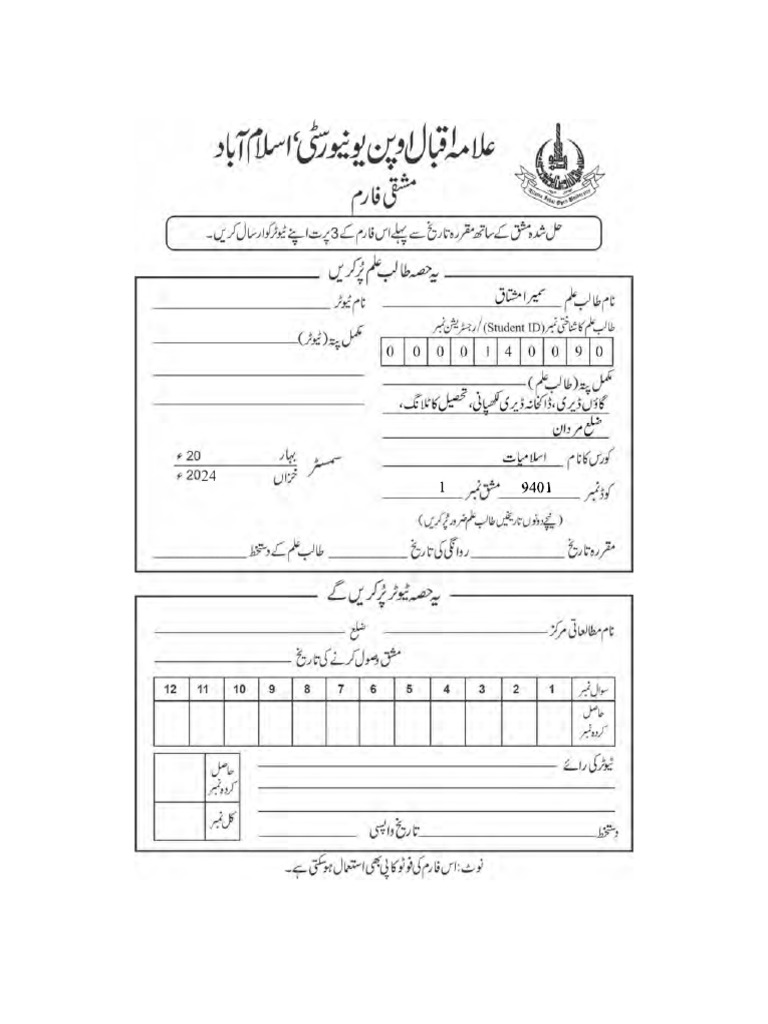 علامہ اقبال اوپن یونیورسٹی، اسلام آباد
Allama Iqbal Open University
مشقی فارم
حل شدہ مشق کے ساتھ مقررہ تاریخ سے پہلے اس فارم کے 3 پرت اپنے ٹیوٹر کو ارسال کریں۔
یہ حصہ طالب علم پُر کریں
نام طالب علم سمیرا مشتاق
نام ٹیوٹر
طالب علم کا شناختی نمبر (Student ID) / رجسٹریشن نمبر
0 0 0 0 1 4 0 0 9 0
مکمل پتہ (ٹیوٹر)
مکمل پتہ (طالب علم)
گاؤں ڈیری، ڈاکخانہ ڈیری لکھپانی، تحصیل کاٹلانگ،
ضلع مردان
کورس کا نام اسلامیات
سمسٹر
بہار 20 ء
خزاں 2024 ء
کوڈ نمبر 9401 مشق نمبر 1
(نیچے دونوں تاریخیں طالب علم ضرور پُر کریں)
مقررہ تاریخ روانگی کی تاریخ طالب علم کے دستخط
یہ حصہ ٹیوٹر پُر کریں گے
نام مطالعاتی مرکز ضلع
مشق وصول کرنے کی تاریخ
سوال نمبر 1 2 3 4 5 6 7 8 9 10 11 12
حاصل کردہ نمبر
ٹیوٹر کی رائے
حاصل کردہ نمبر
کل نمبر
دستخط تاریخ واپسی
نوٹ: اس فارم کی فوٹو کاپی بھی استعمال ہو سکتی ہے۔